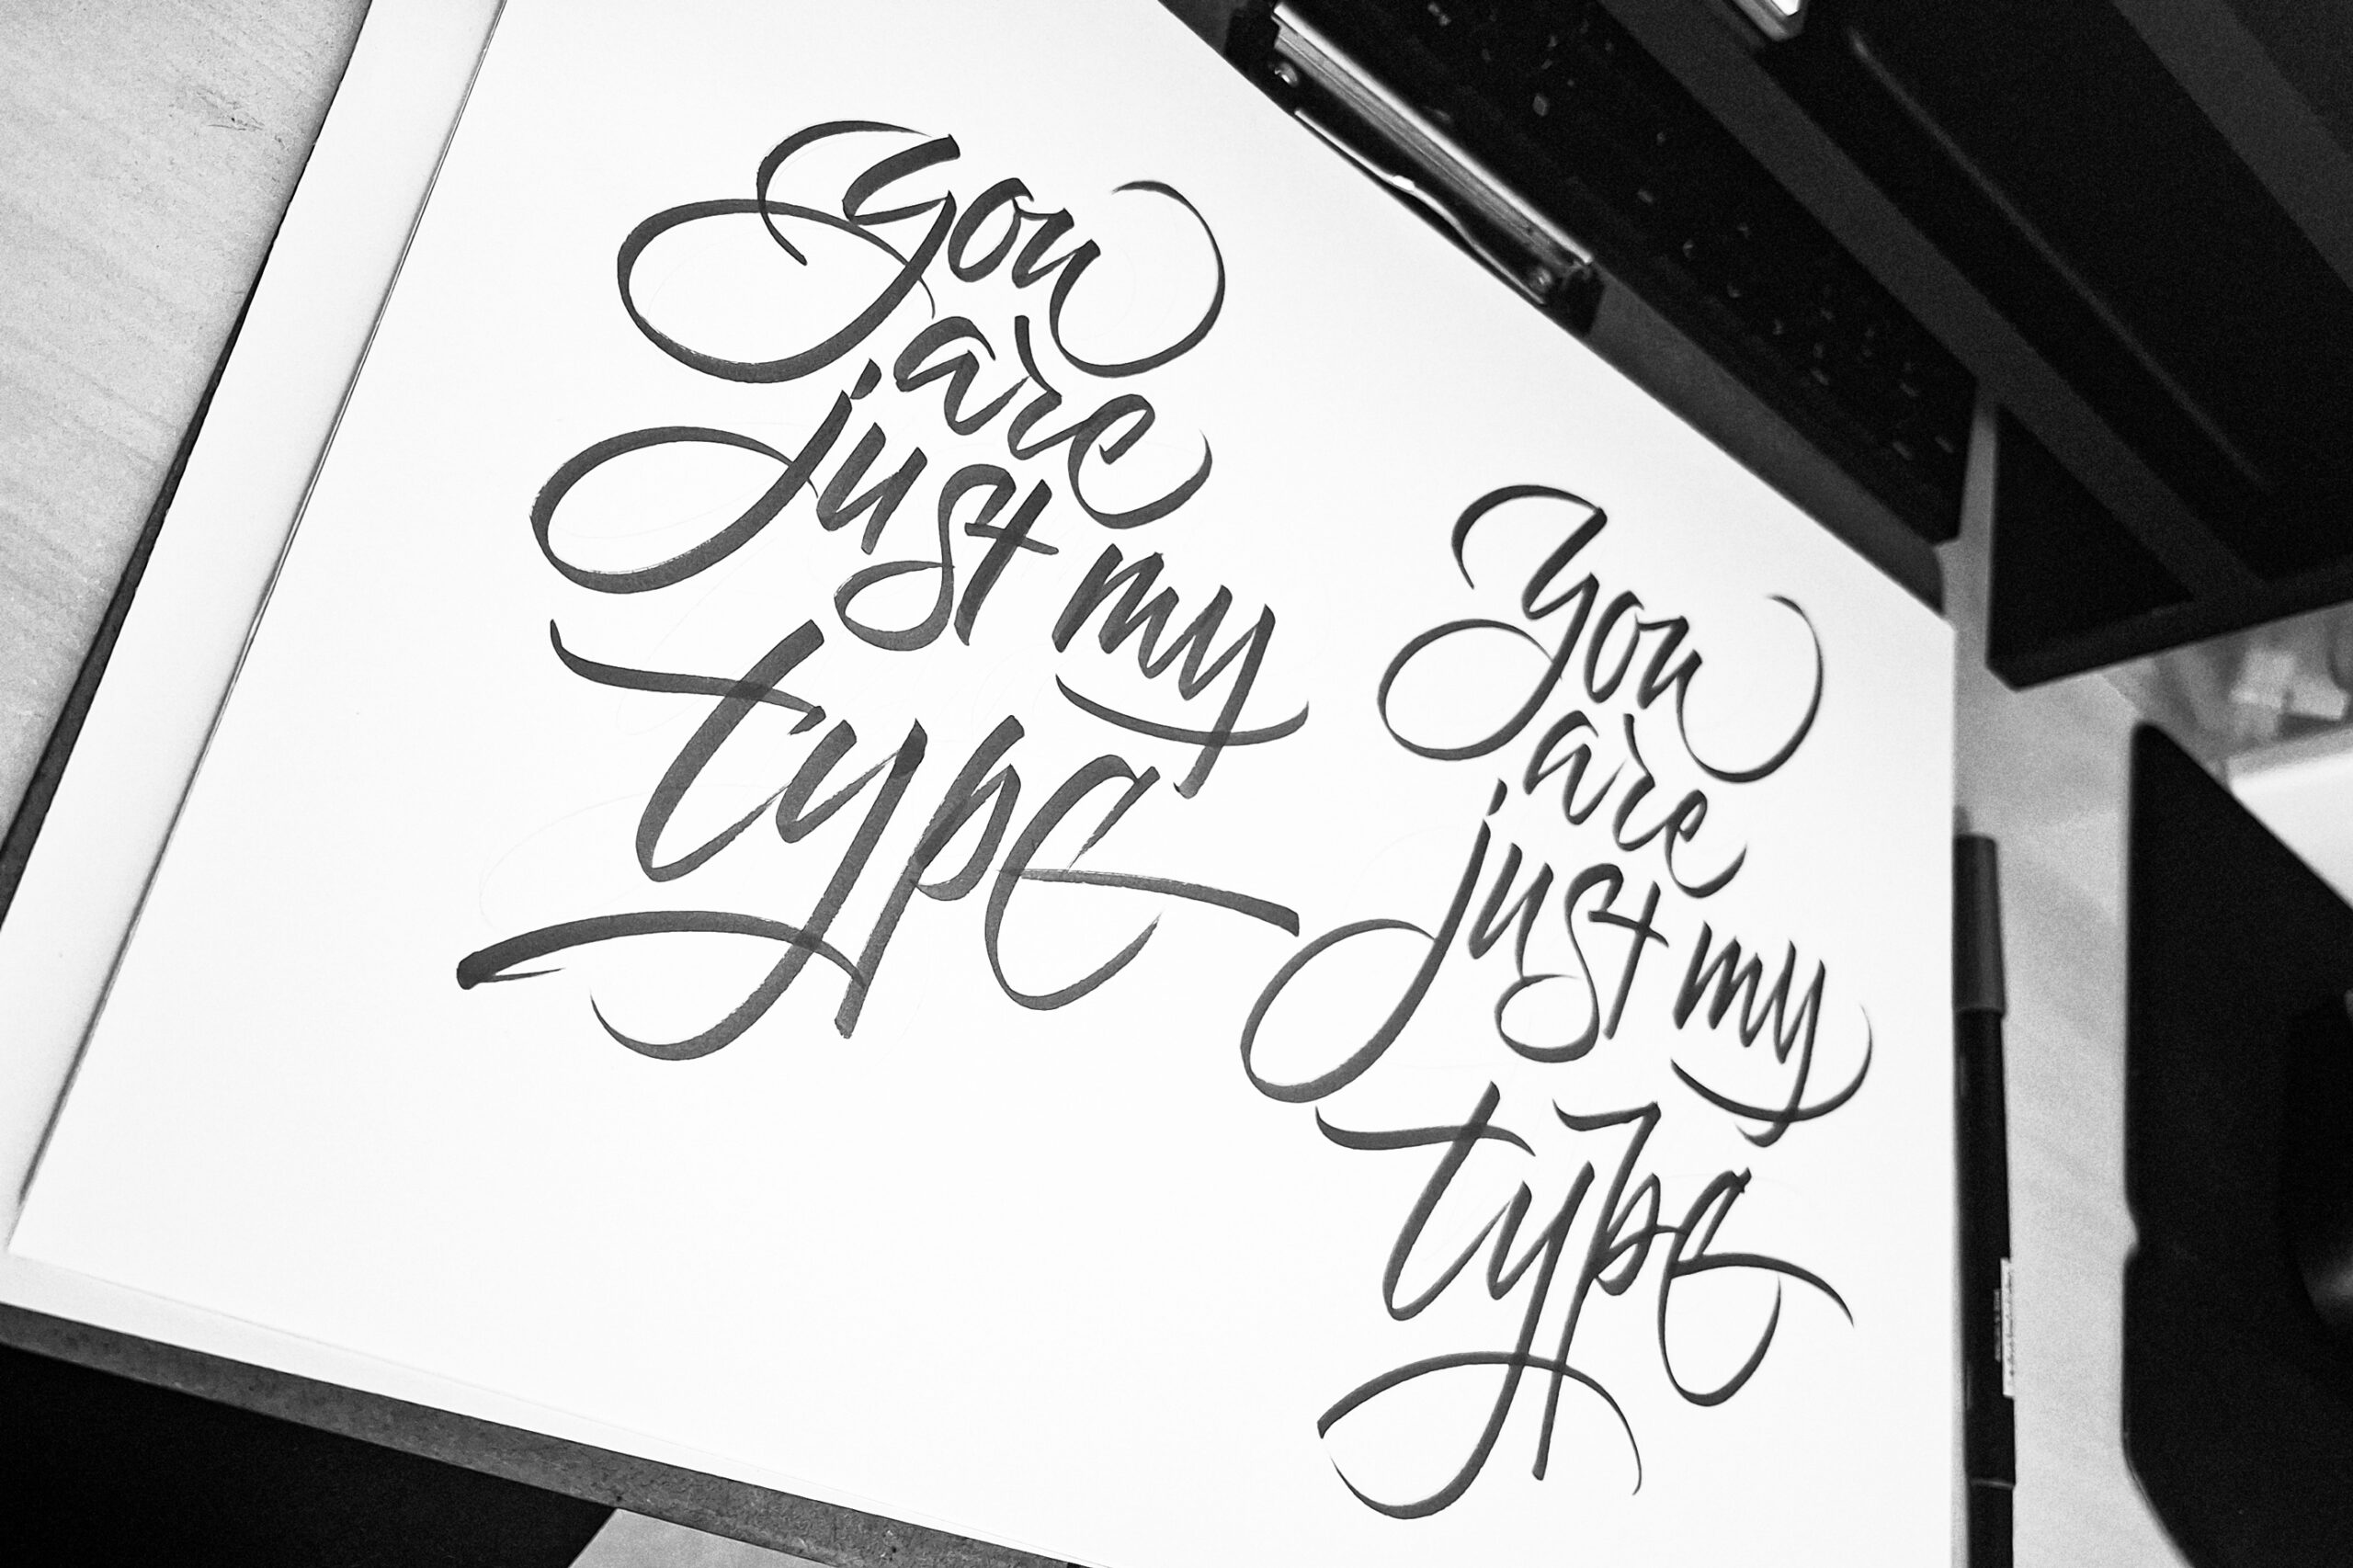 you
are
just my
type
you
are
just my
type